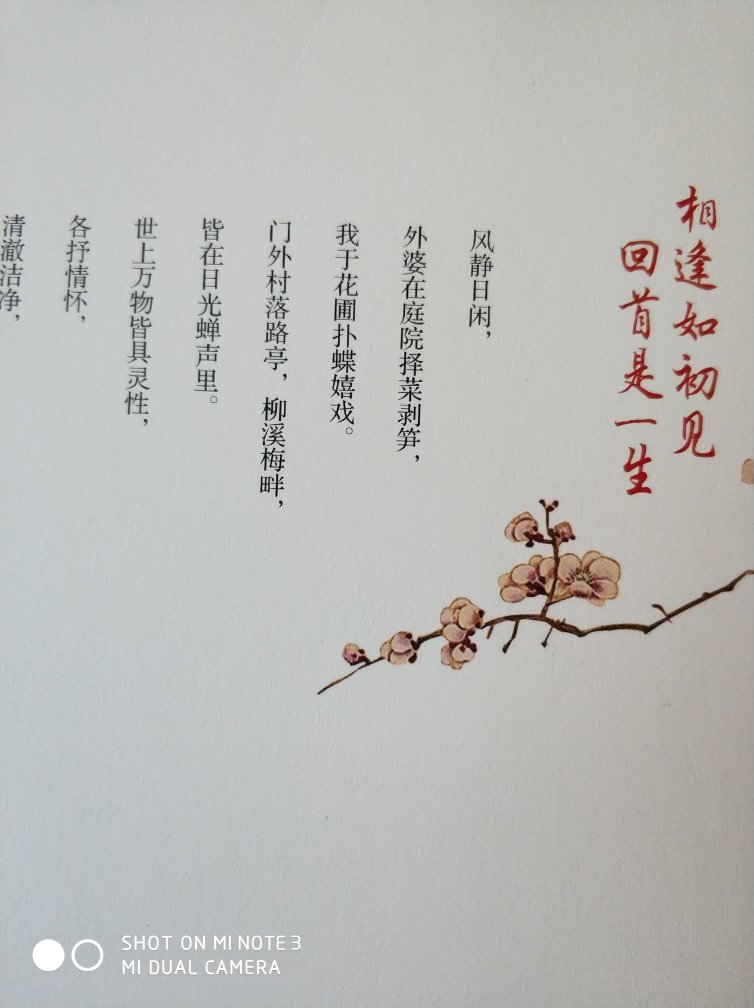 相逢如初见
回首是一生
风静日闲，
外婆在庭院择菜剥笋，
我于花圃扑蝶嬉戏。
门外村落路亭，柳溪梅畔，
皆在日光蝉声里。
世上万物皆具灵性，
各抒情怀，
清澈洁净，
SHOT ON MI NOTE 3
MI DUAL CAMERA